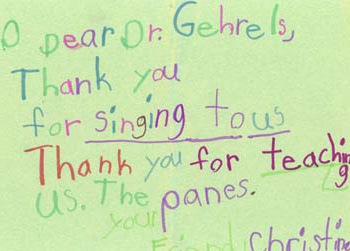 O Dear Dr. Gehrels,
Thank you
for singing to us
Thank you for teaching
us. The panes.
your
Friend christine